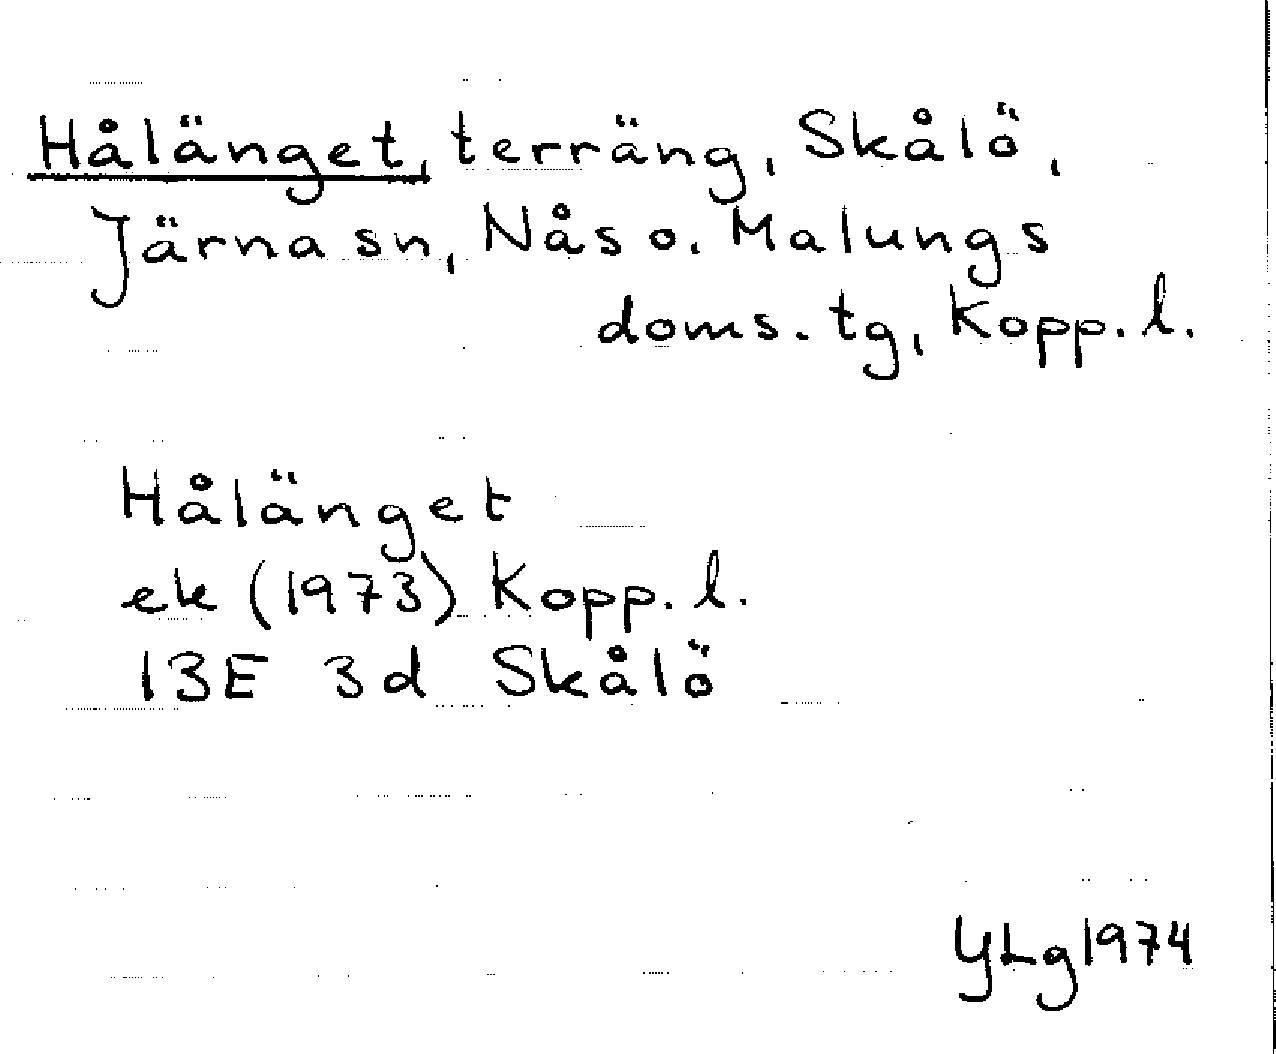 Hålänget, terräng, Skålö,
Järna sn, Nås o. Malungs
doms. tg, Kopp. l.
Hålänget
ek (1973) Kopp. l.
13E 3d Skålö
YLg 1974